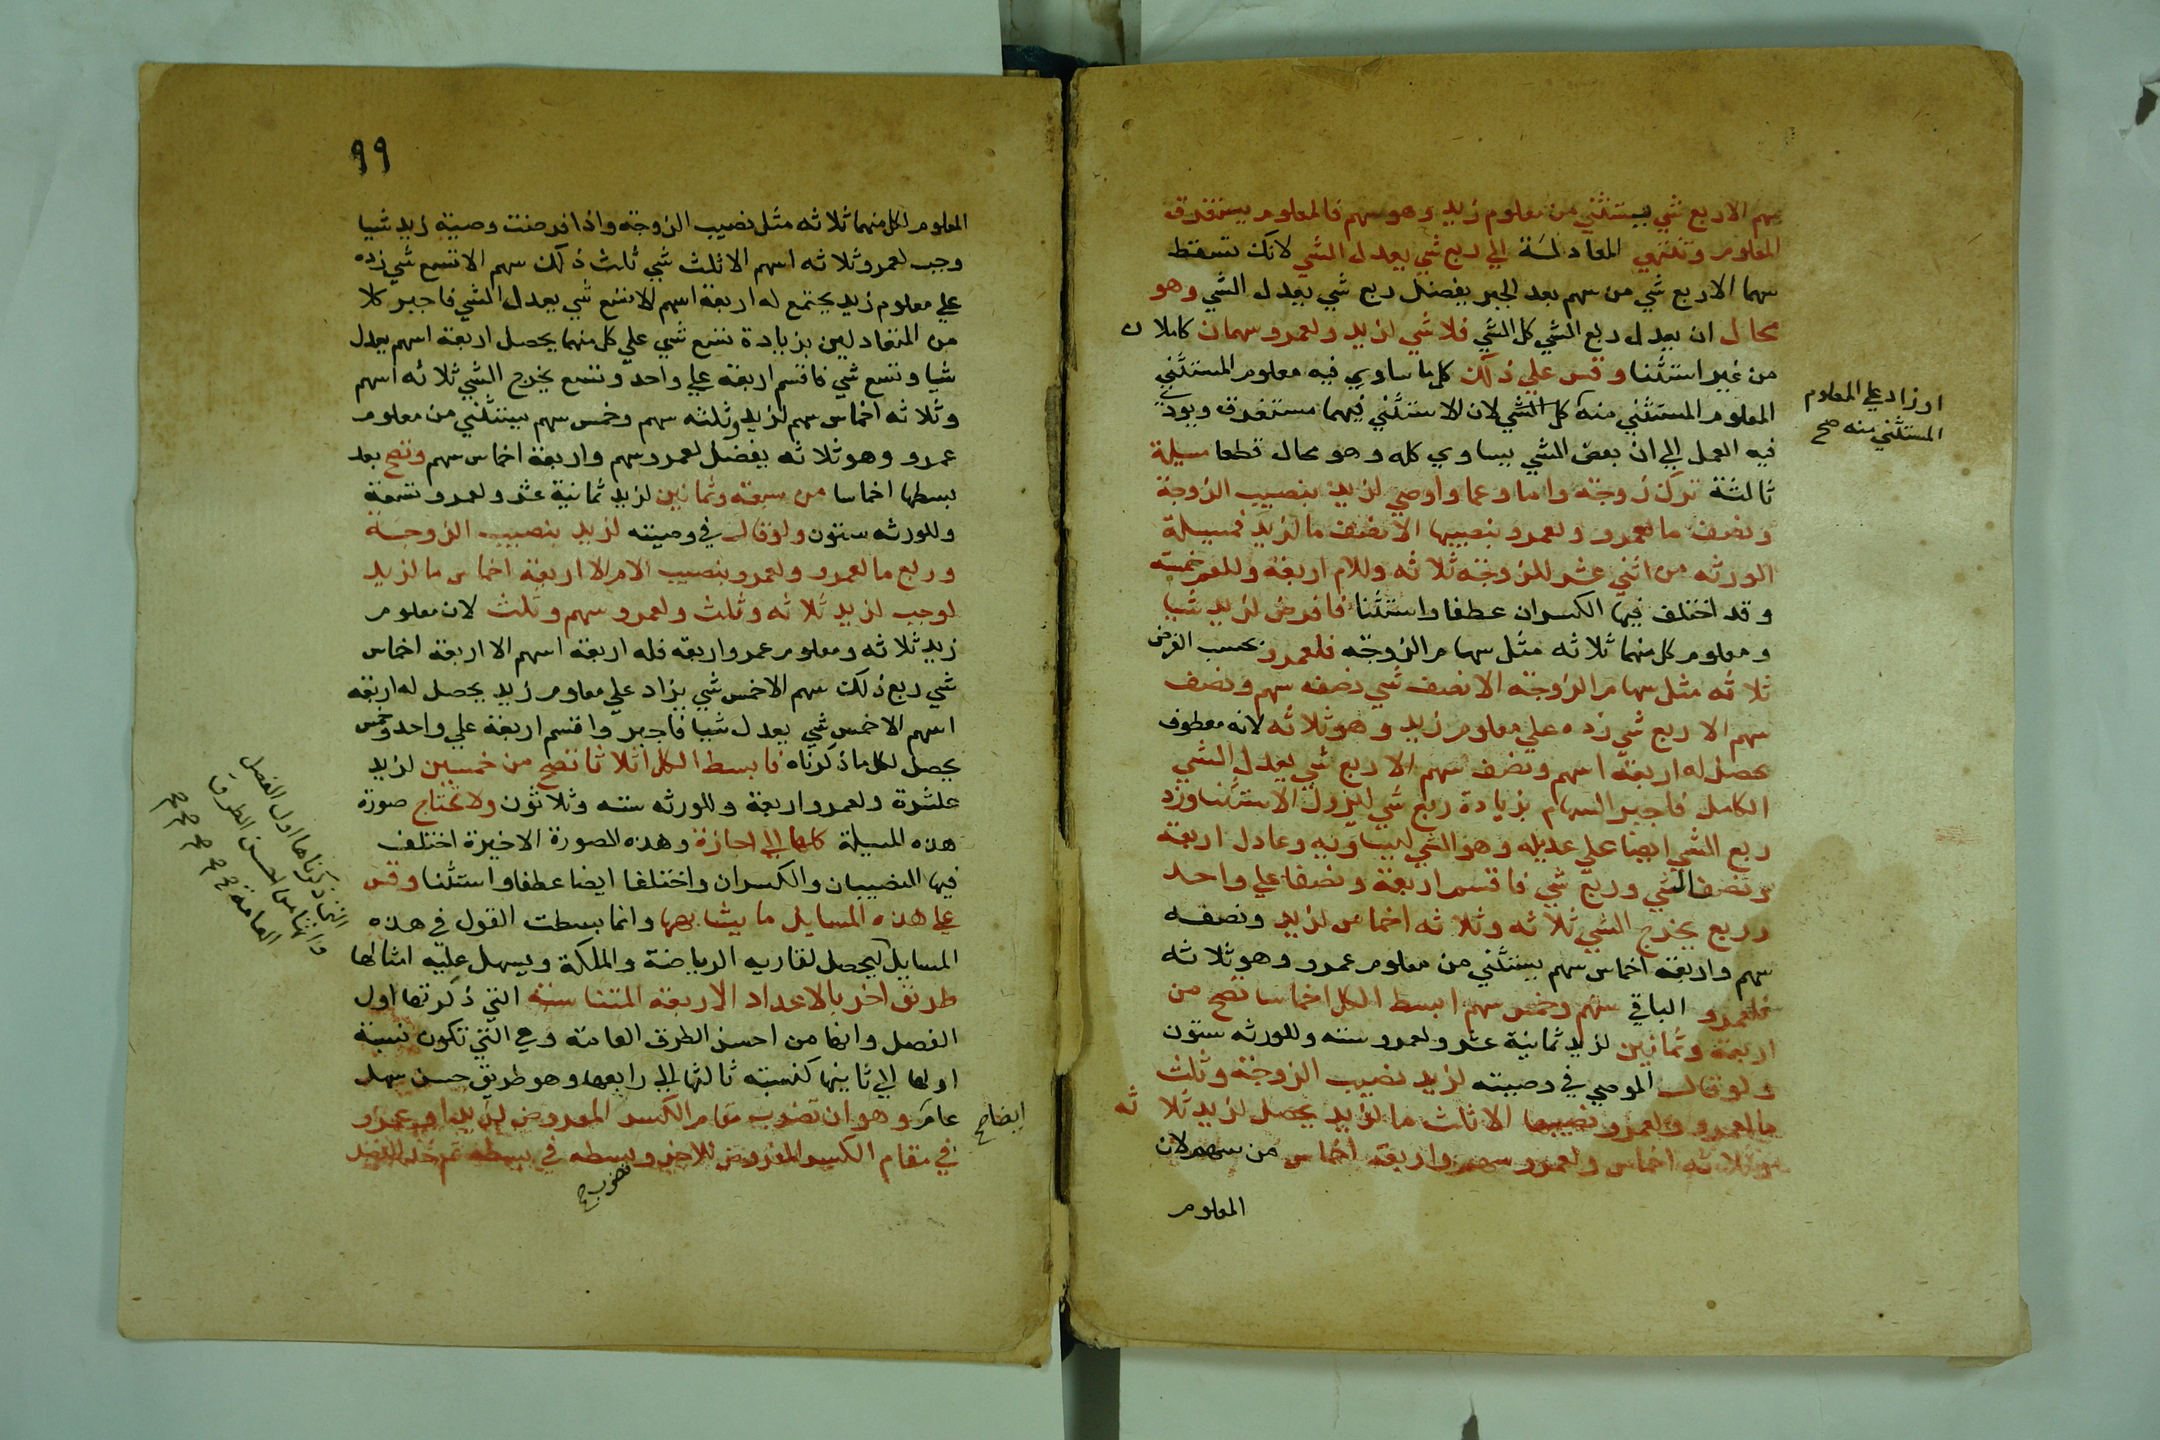 سهم الاربع شي يستثني من معلوم زيد وهو سهم فالمعلوم يستغرق
المعلوم وتنتهي المعادلة الي ربع شي يعدل الشي لانك تسقط
سهما الاربع شي من سهم بعد الجبر يفضل ربع شي يعدل الشي وهو
محال ان يعدل ربع الشي كل الشي فلا شي لزيد ولعمرو سهمان كاملان
من غير استثنا وقس علي ذلك كل ما ساوي فيه معلوم المستثني
المعلوم المستثني منه كل الشي لان الاستثني فيهما مستغرق ويودي
او زاد علي المعلوم
المستثني منه صح
فيه العمل الي ان بعض الشي يساوي كله وهو محال قطعا مسيلة
ثالثة ترك زوجة واما وعما واوصي لزيد بنصيب الزوجة
ونصف ما لعمرو ولعمرو بنصيبها الا نصف ما لزيد فمسيلة
الورثه من اثني عشر للزوجة ثلاثه وللام اربعة وللعم خمسة
وقد اختلف فيها الكسران عطفا واستثنا فافرض لزيد شيا
ومعلوم كل منهما ثلاثه مثل سهام الزوجة فلعمرو بحسب الفرض
ثلاثه مثل سهام الزوجة الا نصف شي نصفه سهم ونصف
سهم الا ربع شي زده علي معلوم زيد وهو ثلاثه لانه معطوف
يحصل له اربعة اسهم ونصف سهم الا ربع شي يعدل الشي
الكامل فاجبر السهام بزيادة ربع شي ليزول الاستثنا وزد
ربع الشي ايضا علي عديله وهو الشي ليساويه وعادل اربعة
ونصفا الشي وربع شي فاقسم اربعة ونصفا علي واحد
وربع يخرج الشي ثلاثه وثلاثه اخماس لزيد ونصفه
سهم واربعة اخماس سهم يستثني من معلوم عمرو وهو ثلاثه
فلعمرو الباقي سهم وخمس سهم ابسط الكل اخماسا تصح من
اربعة وثمانين لزيد ثمانية عشر ولعمرو سته وللورثه ستون
ولو قال الموصي في وصيته لزيد نصيب الزوجة وثلث
ما لعمرو ولعمرو نصيبها الا ثلث ما لزيد يحصل لزيد ثلاثه
وثلاثه اخماس ولعمرو سهم واربعة اخماس من سهم لان
المعلوم
٩٩
المعلوم لكل منهما ثلاثه مثل نصيب الزوجة واذا فرضت وصية زيد شيا
وجب لعمرو ثلاثه اسهم الا ثلث شي ثلث ذلك سهم الا تسع شي زده
علي معلوم زيد يجتمع له اربعة اسهم الا تسع شي يعدل الشي فاجبر كلا
من المتعادلين بزيادة تسع شي علي كل منهما يحصل اربعة اسهم يعدل
شيا وتسع شي فاقسم اربعة علي واحد وتسع يخرج الشي ثلاثه اسهم
وثلاثه اخماس سهم لزيد وثلثه سهم وخمس سهم يستثني من معلوم
عمرو وهو ثلاثه يفضل لعمرو سهم واربعة اخماس سهم وتصح بعد
بسطها اخماسا من سبعة وثمانين لزيد ثمانية عشر ولعمرو تسعة
وللورثه ستون ولو قال في وصيته لزيد بنصيب الزوجة
وربع ما لعمرو ولعمرو بنصيب الام الا اربعة اخماس ما لزيد
لوجب لزيد ثلاثه وثلث ولعمرو سهم وثلث لان معلوم
زيد ثلاثه ومعلوم عمرو اربعة فله اربعة اسهم الا اربعة اخماس
شي ربع ذلك سهم الا خمس شي يزاد علي معلوم زيد يحصل له اربعة
اسهم الا خمس شي يعدل شيا فاجبر واقسم اربعة علي واحد وخمس
يحصل لكل ما ذكرناه فابسط الكل اثلاثا تصح من خمسين لزيد
عشرة ولعمرو اربعة وللورثه سته وثلاثون ولا تحتاج صورة
هذه المسيلة كلها الي اجازة وهذه الصورة الاخيرة اختلف
فيها النصيبان والكسران واختلفا ايضا عطفا واستثنا وقس
علي هذه المسايل ما يشابهها وانما بسطت القول في هذه
المسايل ليحصل لقاريه الرياضة والملكة ويسهل عليه امثالها
طريق اخر بالاعداد الاربعة المتناسبة التي ذكرتها اول
الفصل وانها من احسن الطرق العامة وهي التي تكون نسبة
اولها الي ثانيها كنسبة ثالثها الي رابعها وهو طريق حسن سهل
عام وهو ان تضرب مقام الكسر المفروض لزيد او عمرو
ايضا صح
في مقام الكسر المفروض للاخر وبسطه في بسطه ثم خذ الفضل
مضروب صح
ذكرناها اول الفصل
وانها من احسن الطرق
العامة صح صح صح صح